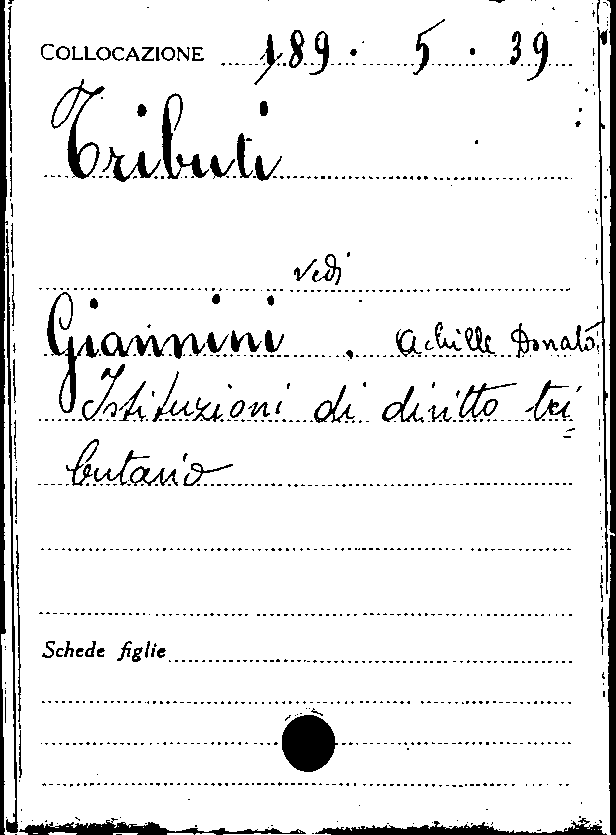 COLLOCAZIONE 189 · 5 · 39
Tributi
vedi
Giannini, Achille Donato
Istituzioni di diritto tri=
butario
Schede figlie